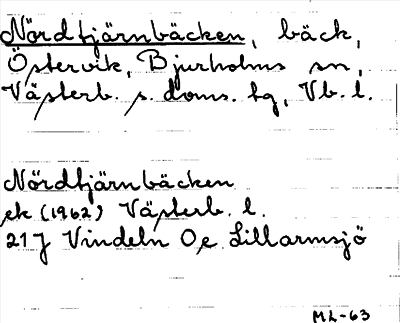 Nördtjärnbäcken, bäck,
Östervik, Bjurholms sn,
Västerb. s. doms. hg, Vb. l.
Nördtjärnbäcken
ek (1962) Västerb. l.
21J Vindeln Öe Lillarmsjö
ML-63